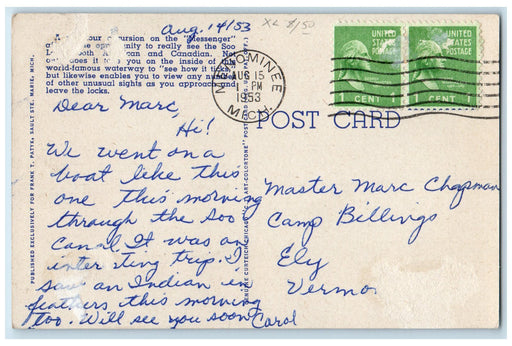 Aug. 14/53
XL $1/50
hour excursion on the "Messenger"
opportunity to really see the Soo
both American and Canadian. Not
does it take you on the inside of this
world-famous waterway to "see how it ticks,"
but likewise enables you to view any number
of other unusual sights as you approach and
leave the locks.
Dear Marc,
Hi!
We went on a
boat like this
one this morning
through the Soo
Canal. It was an
inter sting trip. I
saw an Indian in
feathers this morning
too. Will see you soon
Carol
PUBLISHED EXCLUSIVELY FOR FRANK T. PATTE, SAULT STE. MARIE, MICH.
GENUINE CURTEICH-CHICAGO "C.T. ART-COLORTONE" POST CARD
MENOMINEE
AUG 15
PM
1953
MICH.
UNITED
STATES
POSTAGE
CENT 1
UNITED
STATES
POSTAGE
1 CENT 1
POST CARD
Master Marc Chapman
Camp Billings
Ely
Vermo